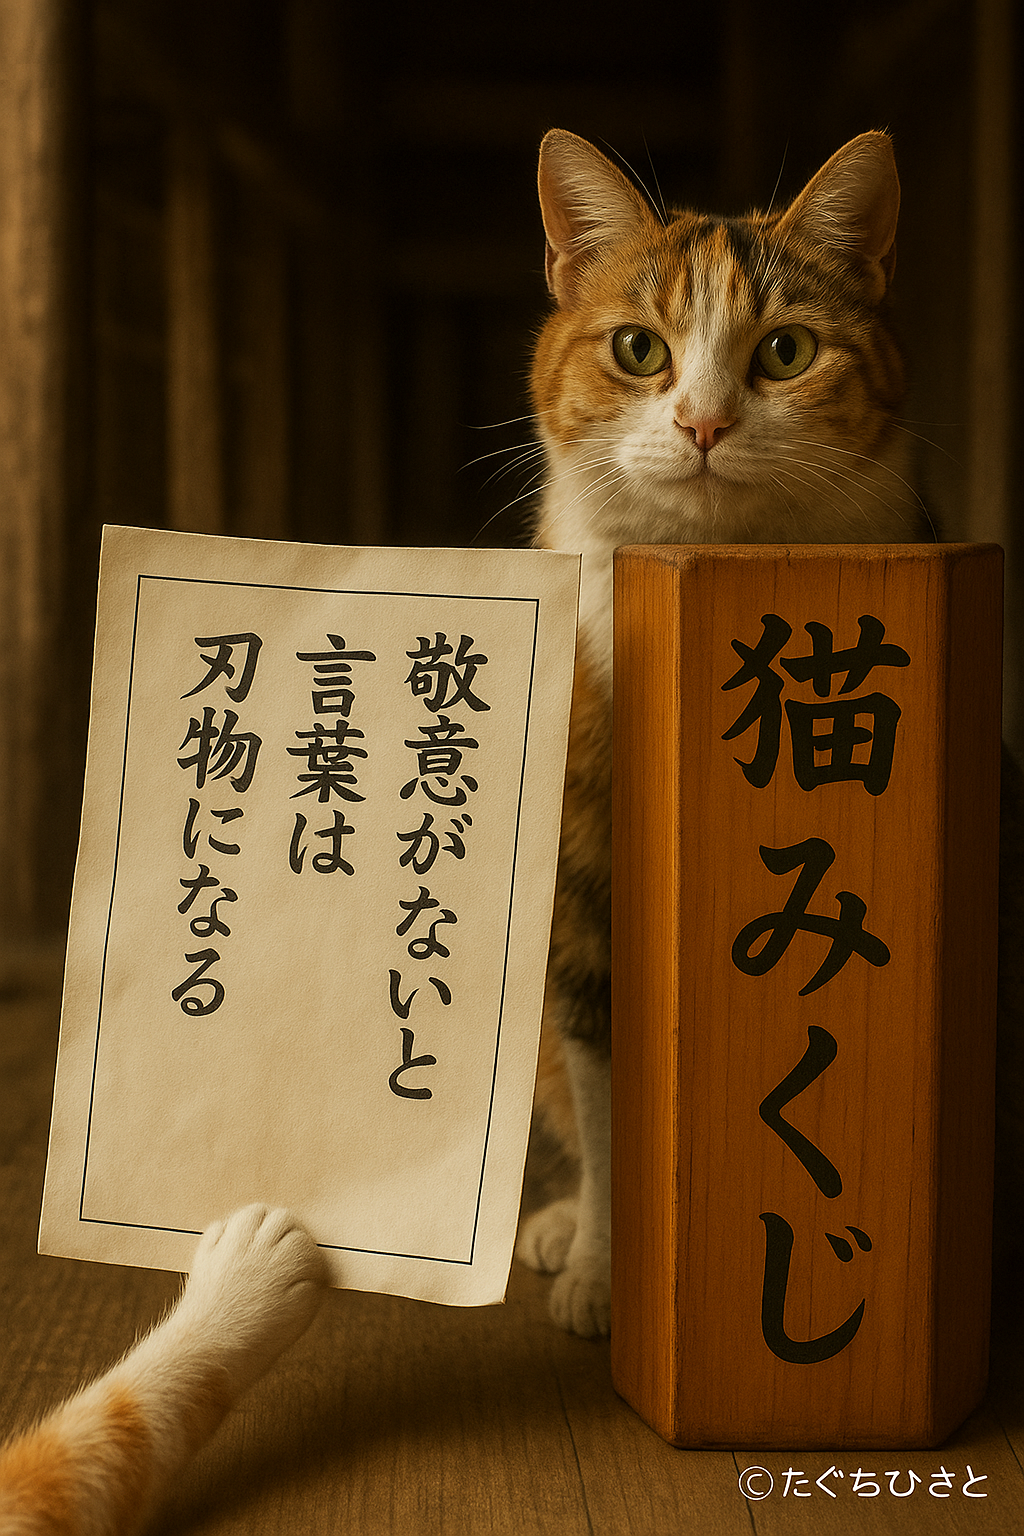 敬意がないと
言葉は
刃物になる
猫みくじ
©たぐちひさと